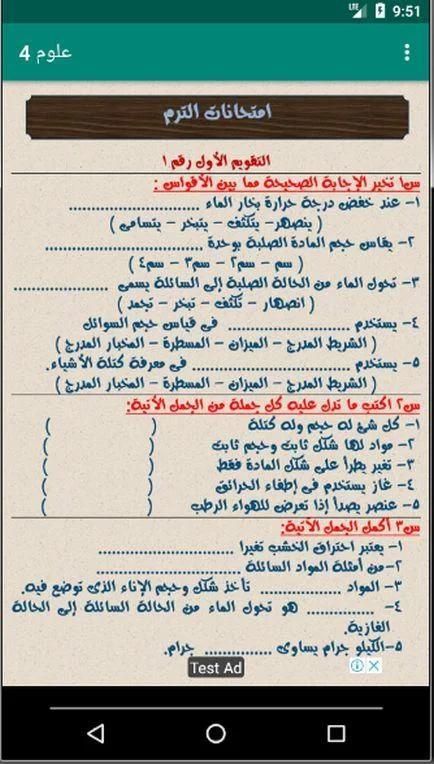 LTE 9:51
علوم 4
امتحانات الترم
التقويم الأول رقم ١
س١ تخير الإجابة الصحيحة مما بين الأقواس :
١- عند خفض درجة حرارة بخار الماء ..........................
( ينصهر - يتكثف - يتبخر - يتسامى )
٢- يقاس حجم المادة الصلبة بوحدة ..............................
( سم - سم٢ - سم٣ - سم٤ )
٣- تحول الماء من الحالة الصلبة إلى السائلة يسمى ..................
( انصهار - تكثف - تبخر - تجمد )
٤- يستخدم ....................... فى قياس حجم السوائل
( الشريط المدرج - الميزان - المسطرة - المخبار المدرج )
٥- يستخدم .............................. فى معرفة كتلة الأشياء.
( الشريط المدرج - الميزان - المسطرة - المخبار المدرج )
س٢ اكتب ما تدل عليه كل جملة من الجمل الآتية:
١- كل شئ له حجم وله كتلة ( )
٢- مواد لها شكل ثابت وحجم ثابت ( )
٣- تغير يطرأ على شكل المادة فقط ( )
٤- غاز يستخدم في إطفاء الحرائق ( )
٥- عنصر يصدأ إذا تعرض للهواء الرطب ( )
س٣ أكمل الجمل الآتية:
١- يعتبر احتراق الخشب تغيرا ..........................
٢-من أمثلة المواد السائلة ..........................
٣- المواد ................ تأخذ شكل وحجم الإناء الذى توضع فيه.
٤- ............. هو تحول الماء من الحالة السائلة إلى الحالة
الغازية.
٥-الكيلو جرام يساوى ............. جرام.
Test Ad